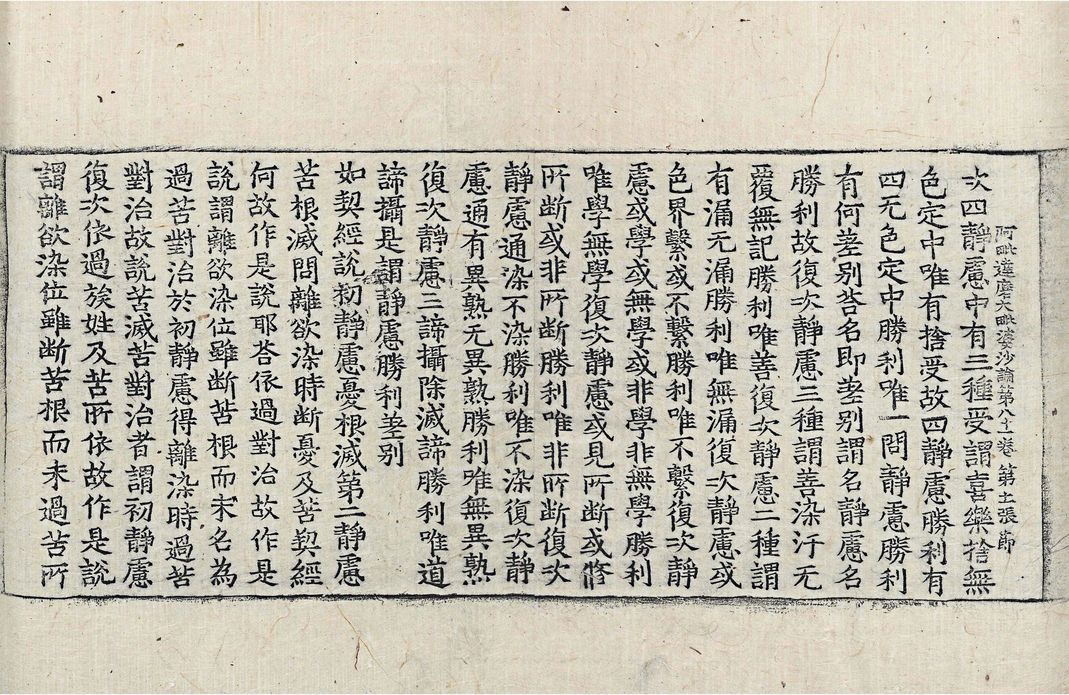 阿毗達磨大毗婆沙論第八十一卷 第十一張 節
次四靜慮中有三種受謂喜樂捨無
色定中唯有捨受故四靜慮勝利有
四无色定中勝利唯一問靜慮勝利
有何差别荅名即差别謂名靜慮名
勝利故復次靜慮三種謂善染汙无
覆無記勝利唯善復次靜慮二種謂
有漏无漏勝利唯無漏復次靜慮或
色界繫或不繫勝利唯不繫復次靜
慮或學或無學或非學非無學勝利
唯學無學復次靜慮或見所断或修
所断或非所断勝利唯非所断復次
靜慮通染不染勝利唯不染復次靜
慮通有異熟无異熟勝利唯無異熟
復次靜慮三諦攝除滅諦勝利唯道
諦攝是謂靜慮勝利差别
如契經說初靜慮憂根滅第二靜慮
苦根滅問離欲染時断憂及苦契經
何故作是說耶荅依過對治故作是
說謂離欲染位雖断苦根而未名為
過苦對治於初靜慮得離染時過苦
對治故說苦滅苦對治者謂初靜慮
復次依過族姓及苦所依故作是說
謂離欲染位雖断苦根而未過苦所